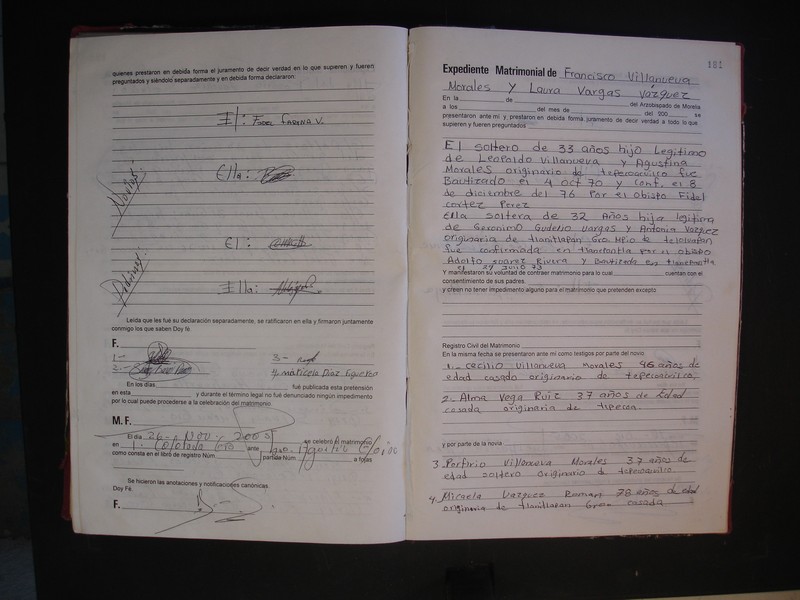 quienes prestaron en debida forma el juramento de decir verdad en lo que supieren y fueren
preguntados y siéndolo separadamente y en debida forma declararon:
El:
Ella:
Novios:
El:
Padrinos:
Ella:
Leída que les fué su declaración separadamente, se ratificaron en ella y firmaron juntamente
conmigo los que saben Doy fé.
F.
1.- 3-
2.- 4. Maricela Diaz Figueroa
En los días fué publicada esta pretensión
en esta y durante el término legal no fué denunciado ningún impedimento
por lo cual puede procederse a la celebración del matrimonio.
M. F.
El día 26- Nov. 2005 se celebró el matrimonio
en ante
como consta en el libro de registro Núm. partida Núm. a fojas
Se hicieron las anotaciones y notificaciones canónicas
Doy Fé.
F.
181
Expediente Matrimonial de Francisco Villanueva
Morales Y Laura Vargas Vázquez
En la de del Arzobispado de Morelia
a los del mes de del 200 se
presentaron ante mí y prestaron en debida forma juramento de decir verdad a todo lo que
supieren y fueren preguntados
El soltero de 33 años hijo Legitimo
de Leopoldo Villanueva y Agustina
Morales originario de teperoaquilco fue
Bautizado el 4 oct 70 y Conf. el 8
de diciembre del 76 Por el obispo Fidel
cortez Perez
Ella soltera de 32 Años hija legitima
de Geronimo Gudelio Vargas y Antonia Vazquez
originaria de tlanitlapan Gro. MPio te teloloapan
fue confirmada en por el obispo
Adolfo suarez Rivera y Bautizada en
el 29 Junio 73
Y manifestaron su voluntad de contraer matrimonio para lo cual cuentan con el
consentimiento de sus padres.
y creen no tener impedimiento alguno para el matrimonio que pretenden excepto
Registro Civil del Matrimonio
En la misma fecha se presentaron ante mí como testigos por parte del novio
1.- cecilio Villanueva Morales 46 años de
edad casado originario de teperoaquilco,
2.- Alma Vega Ruiz 37 años de Edad
casada originaria de
y por parte de la novia
3. Porfirio Villanueva Morales 37 años de
edad soltero originario de teperoaquilco
4. Micaela Vazquez Roman 78 años de edad
originaria de tlanitlapan Gro. casada